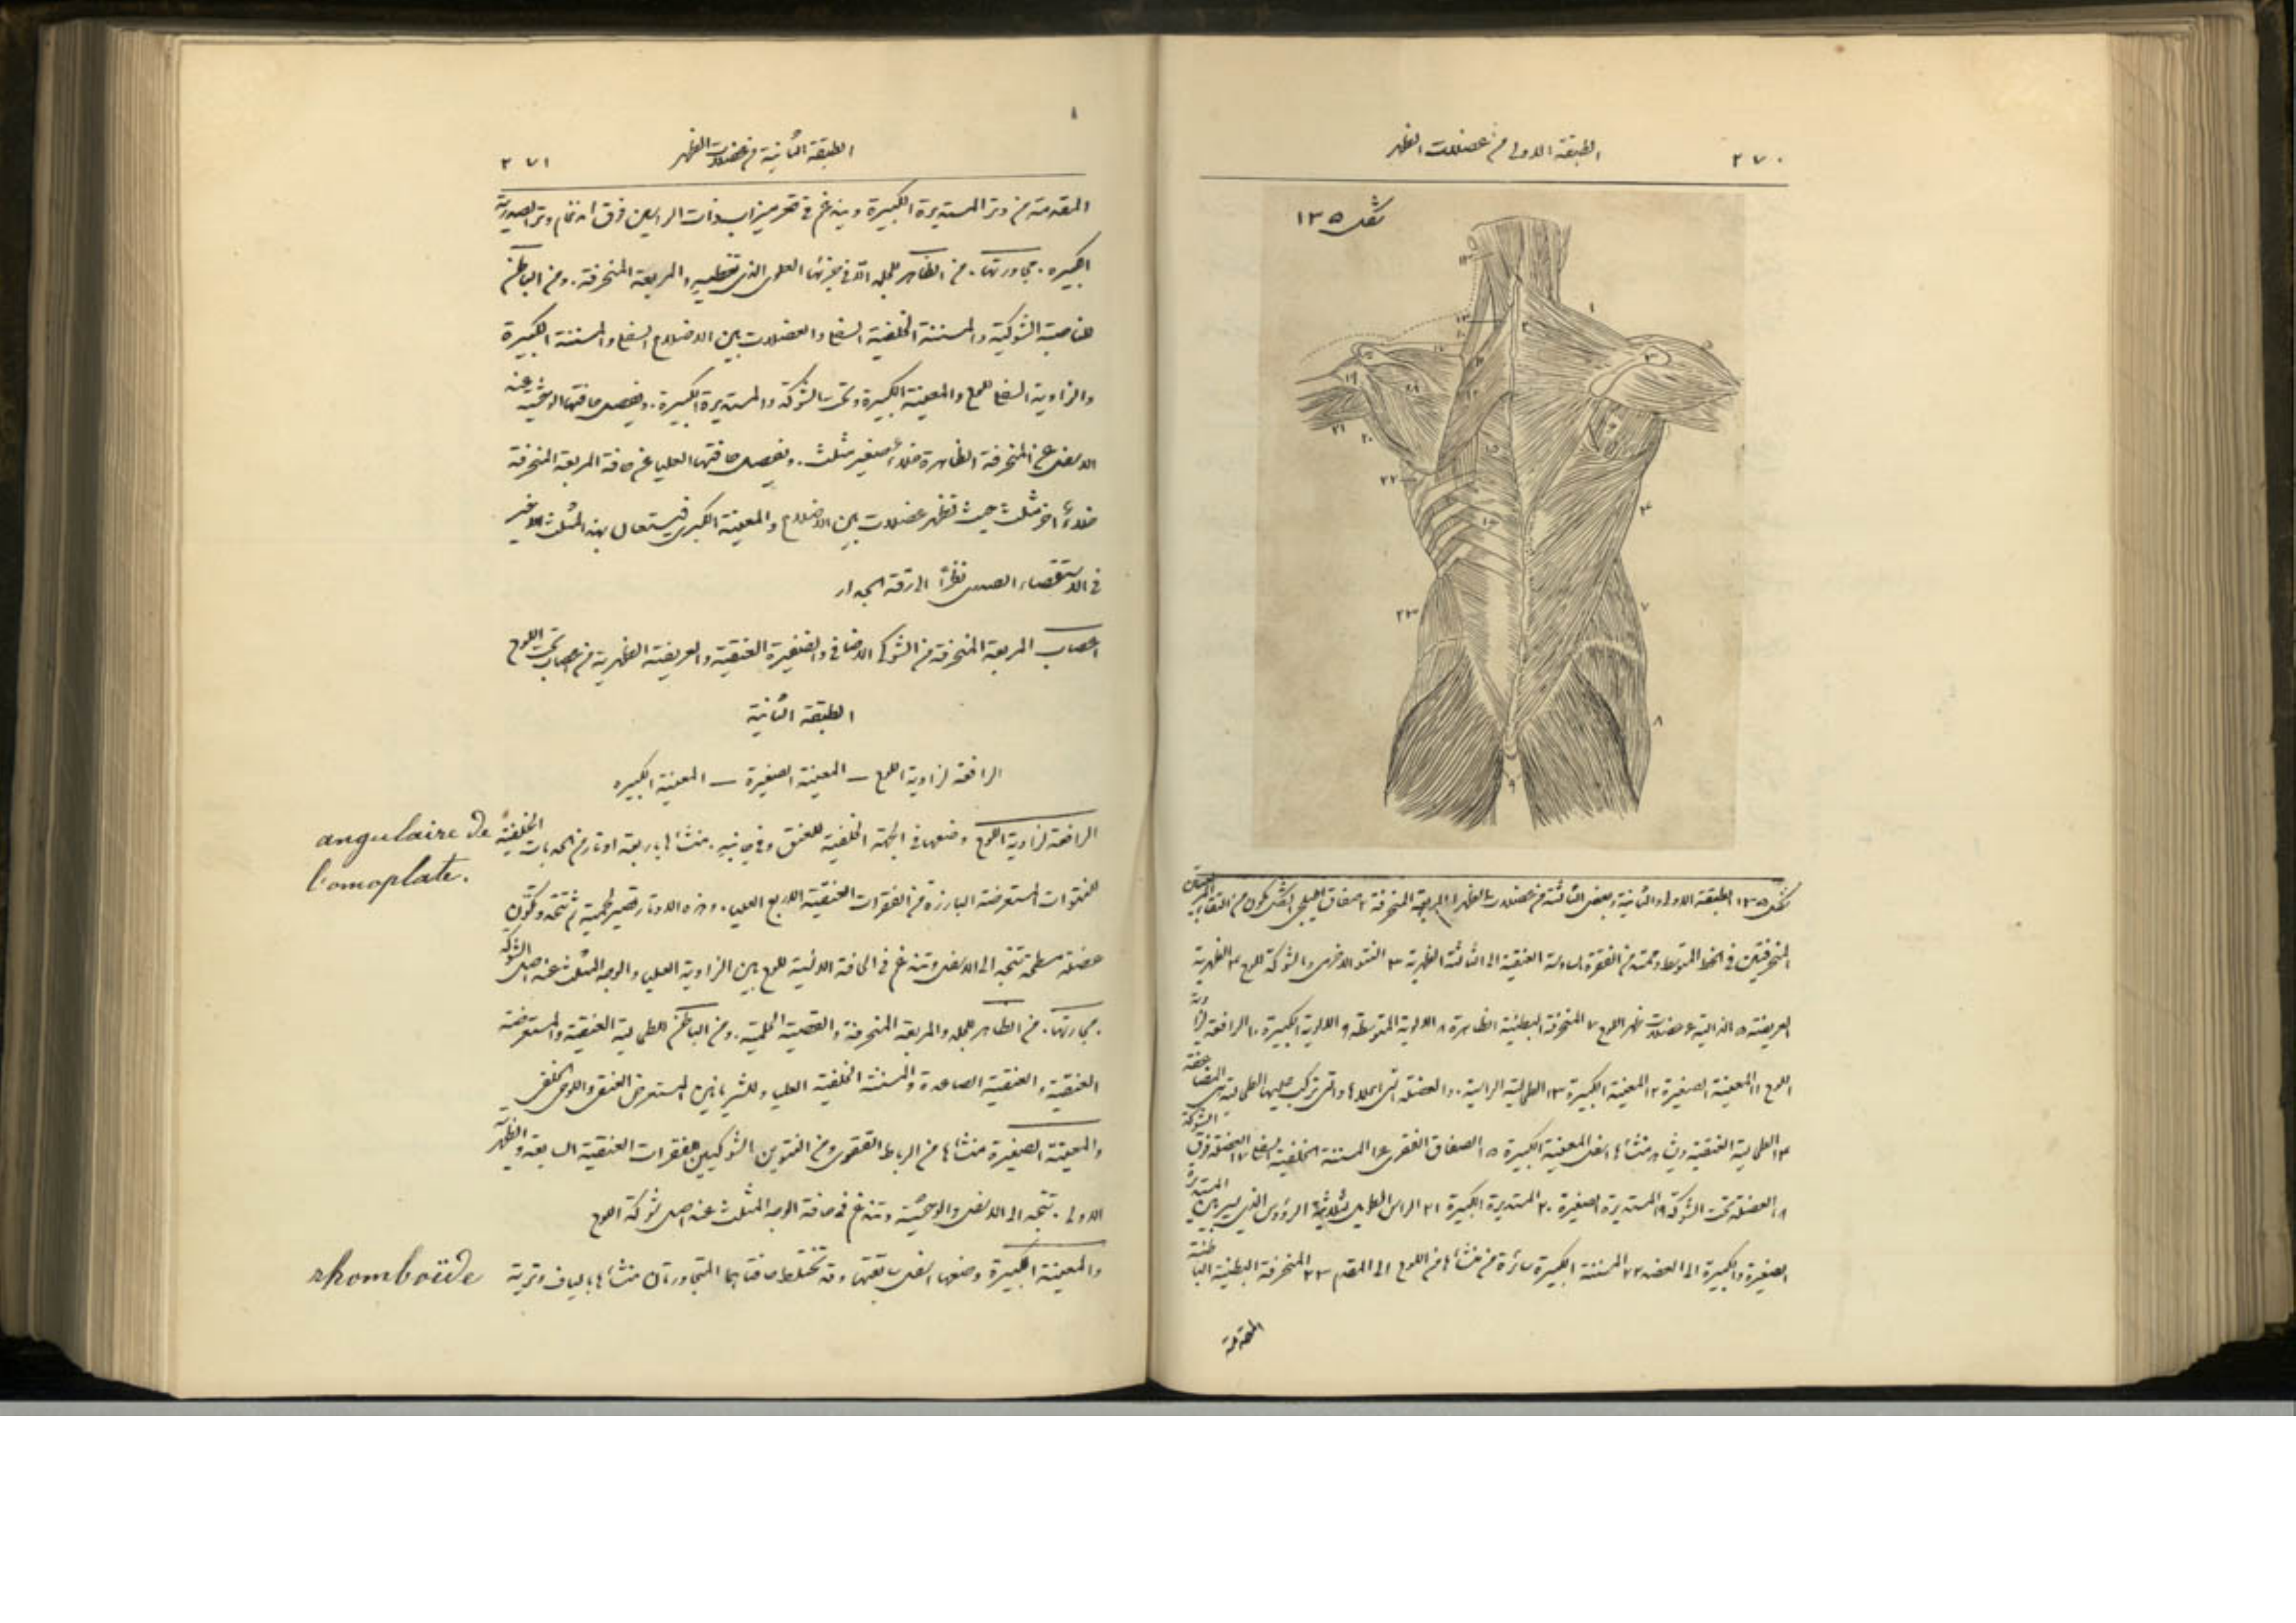 ٢٧٠
الطبقة الاولى من عضلات الظهر
شكل ١٣٥
شكل ١٣٥ الطبقة الاولى والثانية وبعض الثالثة من عضلات الظهر ١ المربعة المنحرفة ٢ صفاق اهليلجي الشكل يكون من التقاء
المنحرفتين في الخط المتوسط وممتد من الفقرة السادسة العنقية الى الثالثة الظهرية ٣ النتوء الاخرمي والشوكة للوح ٤ الظهرية
العريضة ٥ الدالية ٦ عضلات ظهر اللوح ٧ المنحرفة البطنية الظاهرة ٨ الالوية المتوسطة ٩ الالوية الكبيرة ١٠ الرافعة لزاوية
اللوح ١١ المعينة الصغيرة ١٢ المعينة الكبيرة ١٣ الطحالية الراسية والعضلة التي اسفلها والتي تركب عليها الطحالية هي المضاعفة
١٤ الطحالية العنقية منشاها اسفل المعينة الكبيرة ١٥ الصفاق الفقري ١٦ المسننة الخلفية السفلى ١٧ العضلة فوق الشوكة
١٨ العضلة تحت الشوكة ١٩ المستديرة الصغيرة ٢٠ المستديرة الكبيرة ٢١ الراس الطويل لثلاثية الرؤوس الذي يسير بين المستديرة
الصغيرة والكبيرة الى العضد ٢٢ المسننة الكبيرة سائرة من منشاها من اللوح الى المقدم ٢٣ المنحرفة البطنية الباطنة
المقدمة
٨
الطبقة الثانية من عضلات الظهر
٢٧١
المقدمة من وتر المستديرة الكبيرة ويندغم في قعر ميزاب ذات الراسين فوق اندغام وتر الصدرية
الكبيرة. مجاورتها. من الظاهر للجلد الا في جزئها العلوي الذي تغطيه المربعة المنحرفة. ومن الباطن
للناصبة الشوكية والمسننة الخلفية السفلى والعضلات بين الاضلاع السفلى والمسننة الكبيرة
والزاوية السفلى للوح والمعينة الكبيرة وتحت الشوكة والمستديرة الكبيرة. ويفصل حافتها الوحشية عند
الاسفل عن المنحرفة الظاهرة خلاء صغير مثلث. ويفصل حافتها العليا عن حافة المربعة المنحرفة
خلاء اخر مثلث حيث تظهر عضلات بين الاضلاع والمعينة الكبرى فيستعان بهذا المثلث الاخير
في الاستقصاء الصدري نظرا الى رقة الجدار
اعصاب المربعة المنحرفة من الشوكي الاضافي والضفيرة العنقية والعريضة الظهرية من اعصاب تحت اللوح
الطبقة الثانية
الرافعة لزاوية اللوح – المعينة الصغيرة – المعينة الكبيره
الرافعة لزاوية اللوح وضعها في الجهة الخلفية للعنق وفي جانبه. منشاها باربعة اوتار من الحدبات الخلفية
angulaire de
l'omoplate.
للنتوات المستعرضة البارزة من الفقرات العنقية الاربع العليا. وهذه الاوتار تصير لحمية ثم تتحد وتكون
عضلة مسطحة تتجه الى الاسفل وتندغم في الحافة الانسية للوح بين الزاوية العليا والوجه المثلث عند اصل الشوكة
مجاورتها. من الظاهر للجلد والمربعة المنحرفة والقصية الحلمية. ومن الباطن للطحالية العنقية والمستعرضة
العنقية والعنقية الصاعدة والمسننة الخلفية العليا وللشريانين المستعرض العنقي واللوحي الخلفي
والمعينة الصغيرة منشاها من الرباط القفوي ومن النتوين الشوكيين للفقرات العنقية السابعة والظهرية
الاولى. تتجه الى الاسفل والوحشية وتندغم في حافة الوجه المثلث عند اصل شوكة اللوح
والمعينة الكبيرة وضعها اسفل سابقتها وقد تختلط حافتاهما المتجاورتان منشاها بالياف وترية
rhomboïde